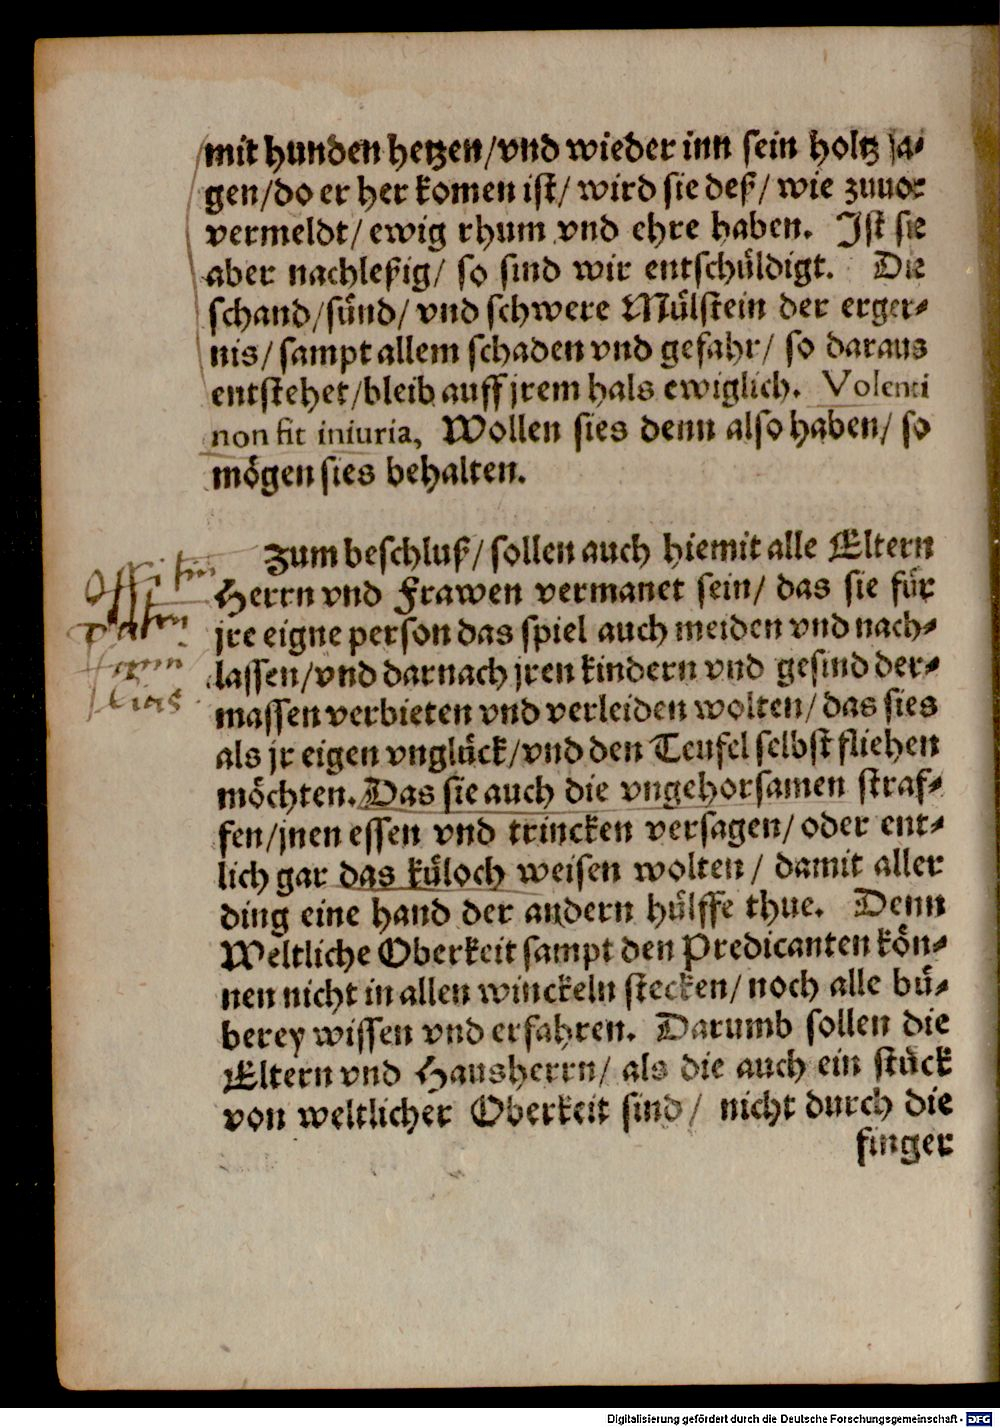 mit hunden hetzen/vnd wieder inn sein holtz ja-
gen/do er her komen ist/ wird sie deß/ wie zuuor
vermeldt/ ewig rhum vnd ehre haben. Ist sie
aber nachleßig/ so sind wir entschüldigt. Die
schand/sünd/ vnd schwere Mülstein der erger-
nis/ sampt allem schaden vnd gefahr/ so daraus
entstehet/bleib auff jrem hals ewiglich. Volenti
non fit iniuria, Wollen sies denn also haben/ so
mögen sies behalten.
Zum beschluß/ sollen auch hiemit alle Eltern
Herrn vnd Frawen vermanet sein/ das sie für
jre eigne person das spiel auch meiden vnd nach-
lassen/vnd darnach jren kindern vnd gesind der-
massen verbieten vnd verleiden wolten/ das sies
als jr eigen vnglück/vnd den Teufel selbst fliehen
möchten. Das sie auch die vngehorsamen straf-
fen/jnen essen vnd trincken versagen/ oder ent-
lich gar das küloch weisen wolten/ damit aller
ding eine hand der andern hülffe thue. Denn
Weltliche Oberkeit sampt den Predicanten kön-
nen nicht in allen winckeln stecken/ noch alle bü-
berey wissen vnd erfahren. Darumb sollen die
Eltern vnd Hausherrn/ als die auch ein stück
von weltlicher Oberkeit sind/ nicht durch die
finger
Patru
famil
lias
Digitalisierung gefördert durch die Deutsche Forschungsgemeinschaft - DFG